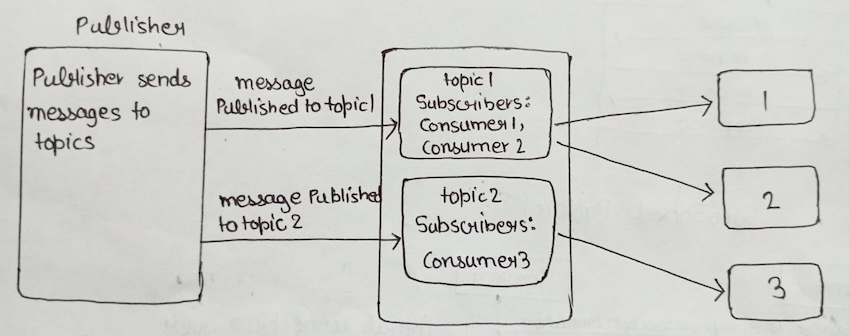 Publisher
Publisher sends
messages to
topics
message
Published to topic1
message Published
to topic 2
topic1
Subscribers:
Consumer1,
Consumer 2
topic2
Subscribers:
Consumer3
1
2
3